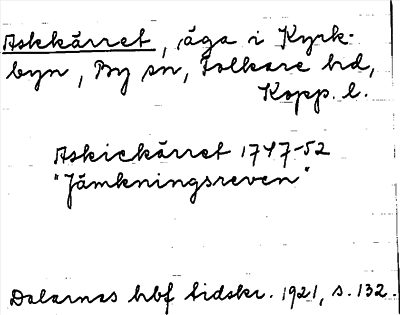 Askkärret, äga i Kyrk-
byn, By sn, Folkare hd,
Kopp. l.
Askiekärret 1747-52
"Jämkningsreven"
Dalarnas hbf tidskr. 1921, s. 132.